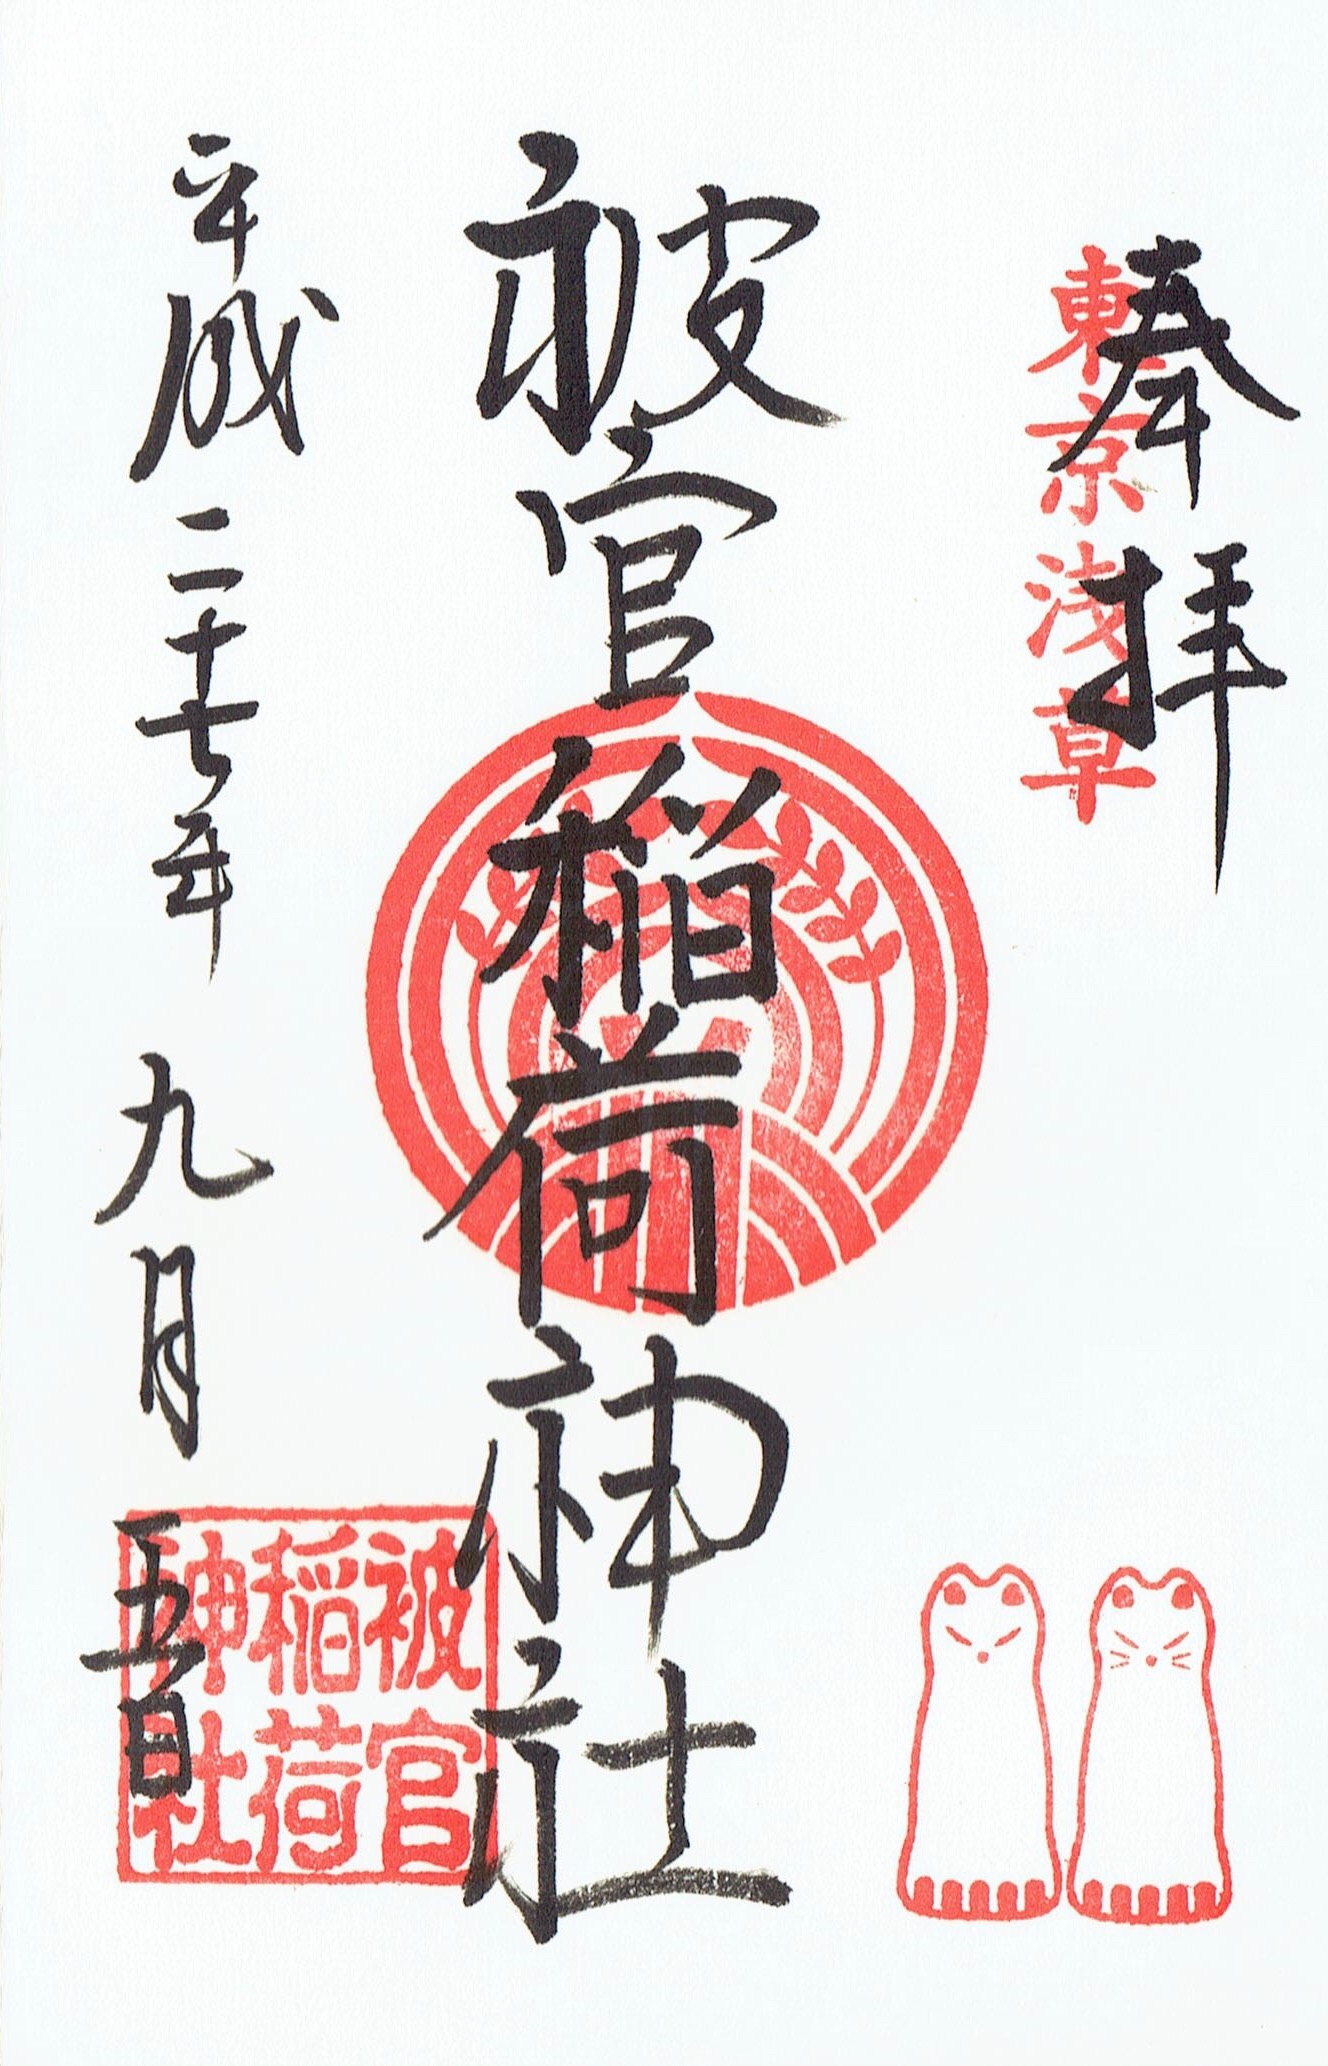 奉拝
東京浅草
被官稲荷神社
平成二十七年九月五日
被官
稲荷
神社